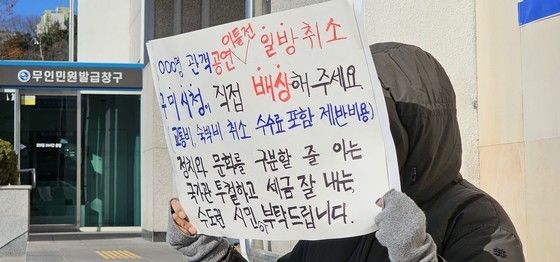 무인민원발급창구
이틀전
000명 관객 공연 일방취소
구미시청이 직접 배상해 주세요.
(교통비, 숙박비 취소 수수료 포함 제반비용)
정치와 문화를 구분할 줄 아는
국가관 투철하고 세금 잘 내는,
수도권 시민이 부탁드립니다.